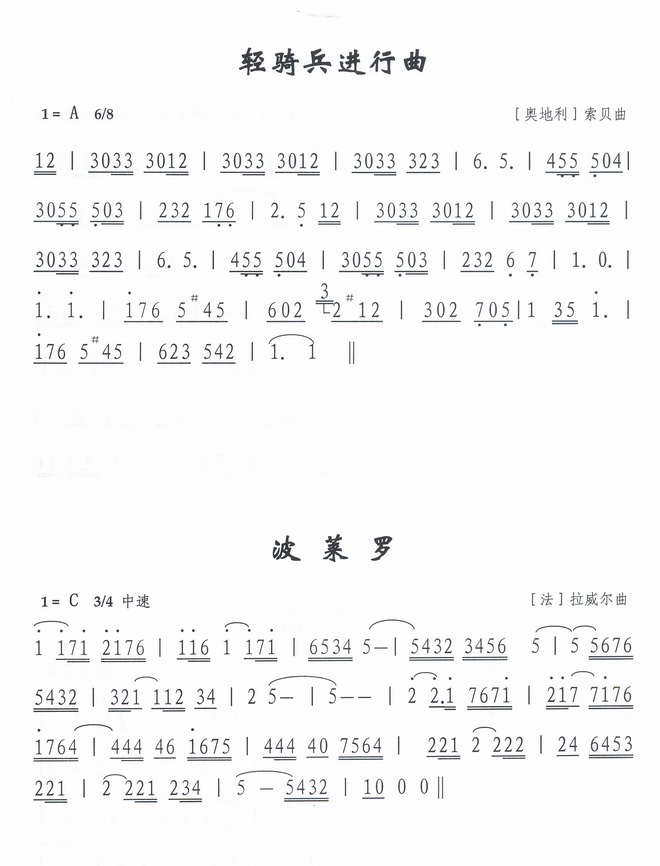 轻骑兵进行曲
1= A 6/8 [奥地利]索贝曲
12 | 3033 3012 | 3033 3012 | 3033 323 | 6. 5. | 455 504|
3055 503 | 232 176 | 2. 5 12 | 3033 3012 | 3033 3012 |
3033 323 | 6. 5. | 455 504 | 3055 503 | 232 6 7 | 1. 0. |
1. 1. | 176 5#45 | 602 3 2#12 | 302 705|1 35 1. |
176 5#45 | 623 542 | 1. 1 ‖
波莱罗
1= C 3/4 中速 [法]拉威尔曲
1 171 2176 | 116 1 171 | 6534 5—| 5432 3456 5 | 5 5676
5432 | 321 112 34 | 2 5— | 5—— | 2 2.1 7671 | 217 7176
1764 | 444 46 1675 | 444 40 7564 | 221 2 222 | 24 6453
221 | 2 221 234 | 5 — 5432 | 10 0 0 ‖